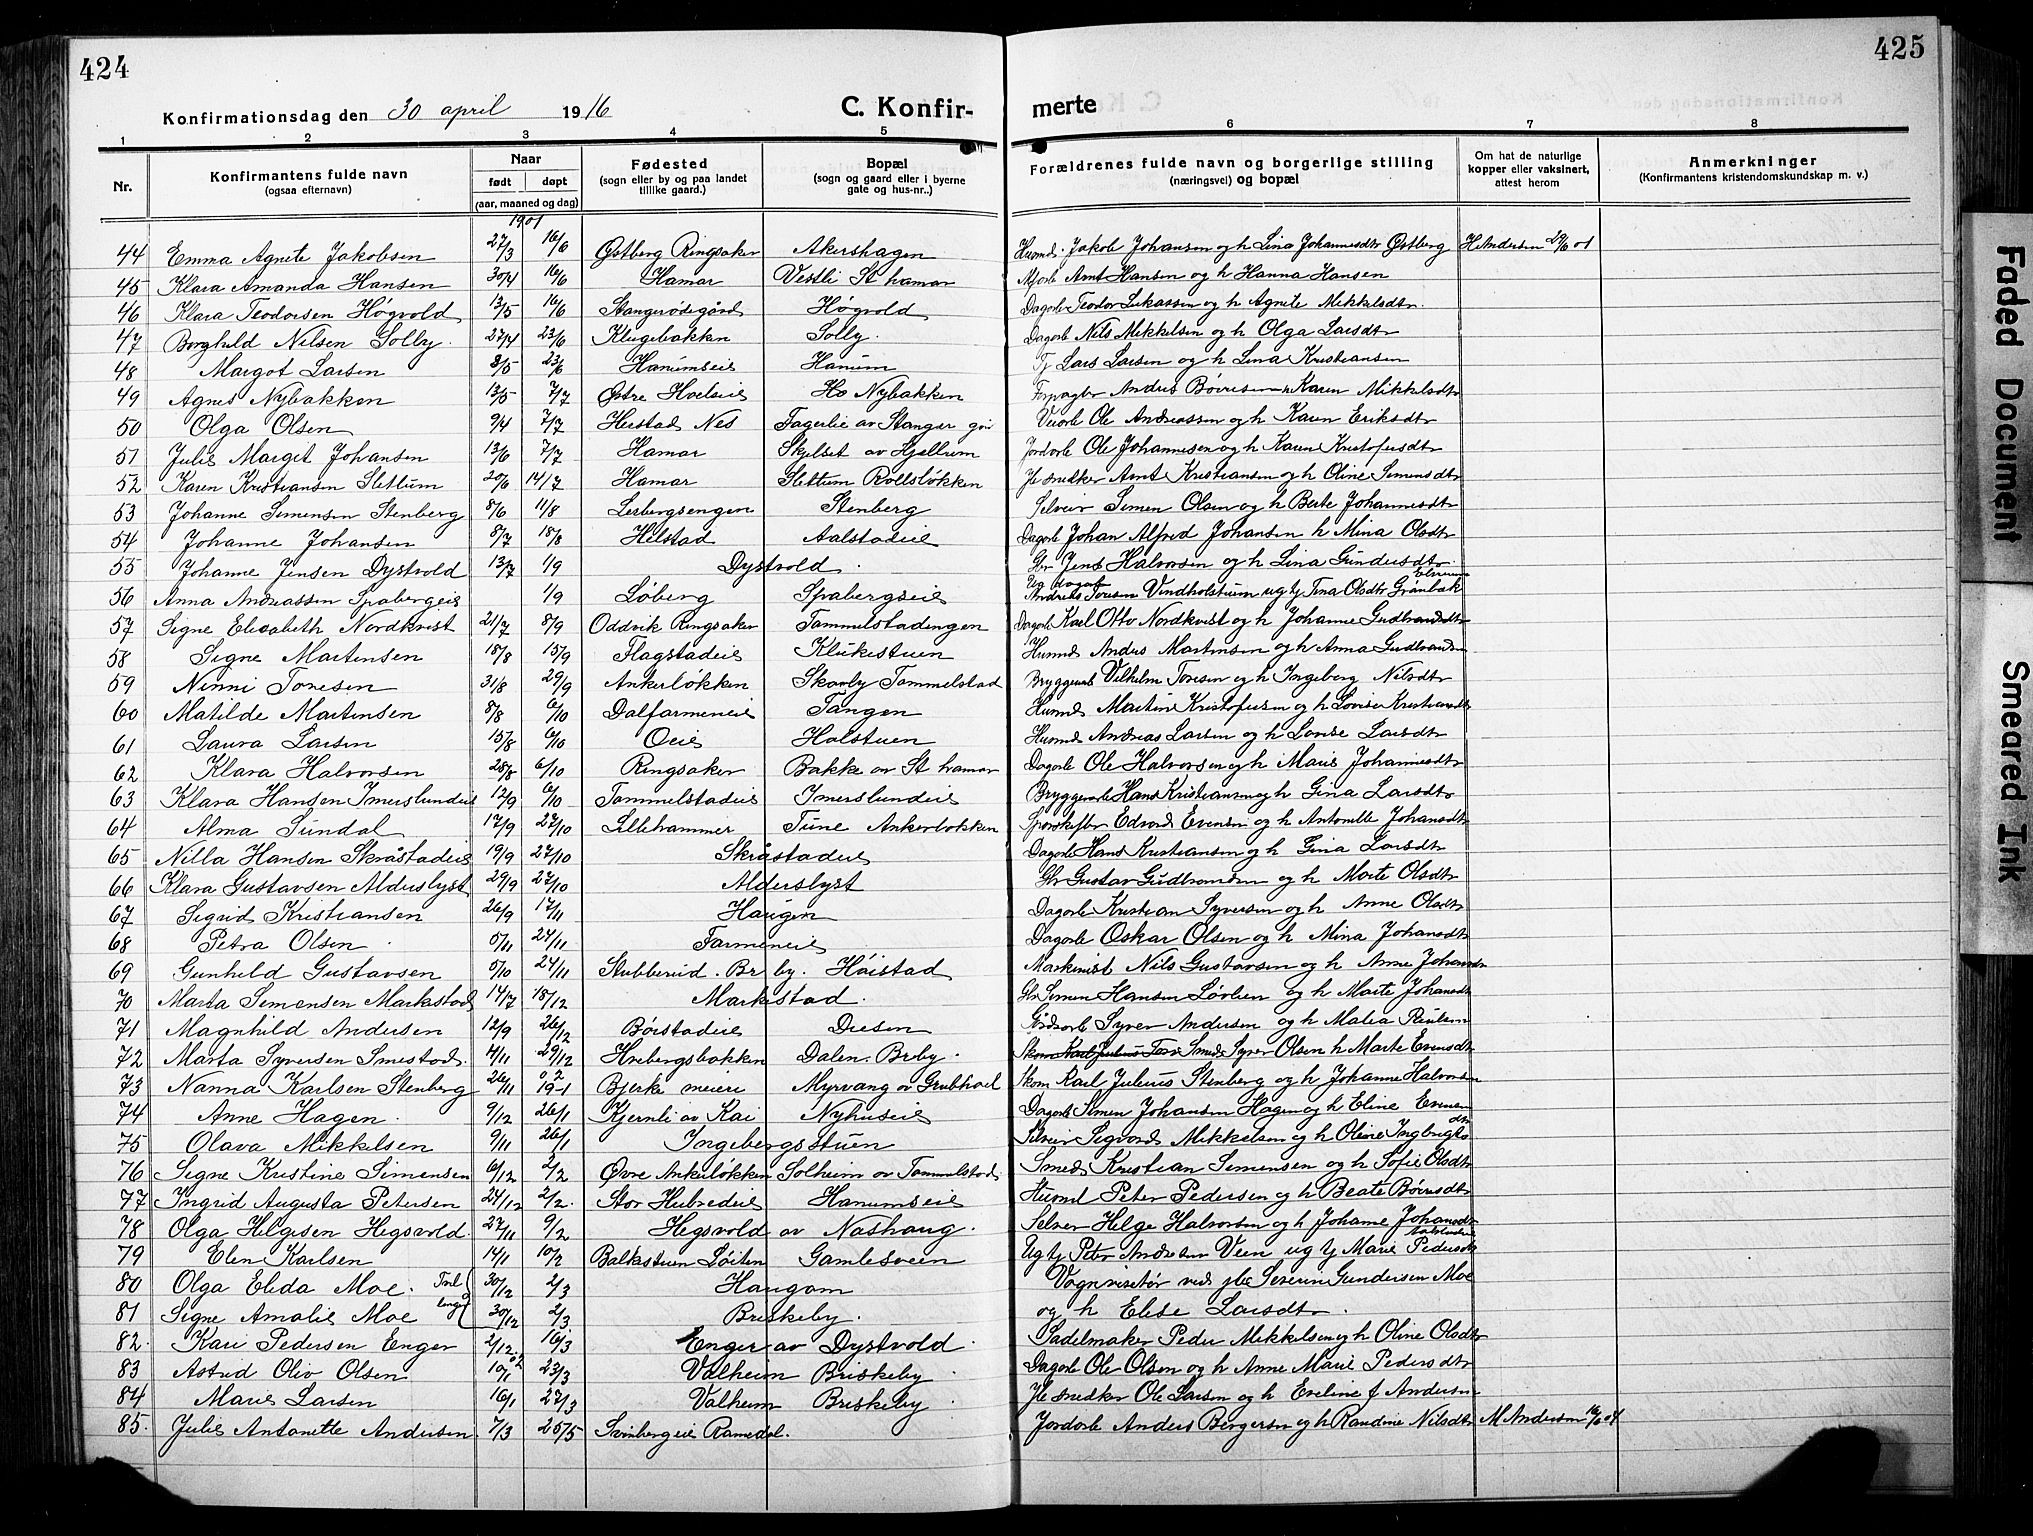 424
425
Konfirmationsdag den 30 april 1916
C. Konfir-
merte
1 2 3 4 5 6 7 8
Nr.
Konfirmantens fulde navn
(ogsaa efternavn)
Naar
født døpt
(aar, maaned og dag)
Fødested
(sogn eller by og paa landet
tillike gaard.)
Bopæl
(sogn og gaard eller i byerne
gate og hus-nr..)
Forældrenes fulde navn og borgerlige stilling
(næringsvei) og bopæl
Om hat de naturlige
kopper eller vaksinert,
attest herom
Anmerkninger
(Konfirmantens kristendomskundskap m. v.)
1901
44 Emma Agnete Jakobsen 27/3 16/6 Østberg Ringsaker Akershagen Husmd. Jakob Johansen og h Lina Johannesdtr Østberg H Andersen 29/6 01
45 Klara Amanda Hansen 30/4 16/6 Hamar Vestli St hamar Arnt Hansen og h Hanna Hansen
46 Klara Teodorsen Høgvold 13/5 16/6 Stangerødegård Høgvold Dagarb Teodor Lukassen og h Agnete Mikkelsdtr.
47 Borghild Nilsen Solby. 27/4 23/6 Klugebakken Solby. Dagarb Nils Mikkelsen og h Olga Larsdtr
48 Margot Larsen 8/5 23/6 Hanumseie Hanum Tj Lars Larsen og h Lina Kristiansen
49 Agnes Nybakken 13/5 7/7 Østre Hoeleie Ho Nybakken Forpagter Anders Børresen h Karen Mikkelsdtr
50 Olga Olsen 9/4 7/7 Herstad Nes Fagerlie av Stangar Veiarb Ole Andreassen og h Karen Eriksdtr
51 Julie Margit Johansen 13/6 7/7 Hamar Skjelset av Hjellum Jordarb Ole Johannesen og h Karen Kristofersdtr
52 Karen Kristiansen Slettum 20/6 14/7 Hamar Slettum Rollsløkken Jb snedker Arnt Kristiansen og h Oline Simensdtr
53 Johanne Simensen Stenberg 8/6 11/8 Lerbergsengen Stenberg Selveier Simen Olsen og h Beate Johannesdtr
54 Johanne Johansen 8/7 18/8 Helstad Aalstadeie Dagarb Johan Alfred Johansen h Mina Olsdtr
55 Johanne Jensen Dystvold 13/7 1/9 Dystvold. Gbr Jens Halvorsen og h Lina Gundersdtr.
56 Anna Andreassen Spabergeie 1/9 Løberg Spabergseie Ug dagarb Andreas Toresen Vindholstuen ug ty Tina Olsdtr Grønbak Elverum
57 Signe Elisabeth Nordkvist 21/7 8/9 Oddvik Ringsaker Tommelstadengen Dagarb Karl Otto Nordkvist og h Johanne Gudbrandsdtr
58 Signe Martinsen 18/8 15/9 Flagstadeie Klukestuen Husmd Anders Martinsen og h Anna Gudbrandsen
59 Ninni Toresen 31/8 29/9 Ankerløkken Skovly Tommelstad Bryggearb Vilhelm Toresen og h Ingeborg Nilsdtr
60 Matilde Martinsen 8/8 6/10 Dalfarmeneie Tangen Husmd Martin Kristofersen og h Lovise Kristiansdtr
61 Laura Larsen 15/8 6/10 Oeie Holstuen Husmd Andreas Larsen og h Lovise Larsdtr
62 Klara Halvorsen 28/8 6/10 Ringsaker Bakke av St hamar Dagarb Ole Halvorsen og h Marie Johannesdtr
63 Klara Hansen Imerslundeie 12/9 6/10 Tommelstadeie Imerslundeie Bryggearb Hans Kristiansen og h Gina Larsdtr
64 Alma Sundal 17/9 27/10 Lillehammer Tune Ankerløkken Sporskifter Edvard Evensen og h Antonette Johansdtr
65 Nilla Hansen Skråstadeie 19/9 27/10 Skråstadeie Dagarb Hans Kristiansen og h Gina Larsdtr
66 Klara Gustavsen Alderslyst 29/9 27/10 Alderslyst Gbr Gustav Gudbrandsen og h Marte Olsdtr
67 Sigrid Kristiansen 26/9 17/11 Haugen Dagarb Kristian Syversen og h Anne Olsdtr
68 Petra Olsen. 5/11 24/11 Farmeneie Dagarb Oskar Olsen og h Mina Johansdtr
69 Gunhild Gustavsen 5/10 24/11 Stubberud. Br by. Høistad Maskinist Nils Gustavsen og h Anne Johansdtr
70 Marta Simensen Markestad 14/7 18/12 Markestad. Gbr Simen Hansen Løvlien og h Marte Johansdtr
71 Magnhild Andersen 12/9 26/12 Børstadeie Diesen Gårdsarb Syver Andersen og h Malia Paulsen
72 Marta Syversen Smestad. 4/11 29/12 Hvebergsbakken Dalen. Brby. Smed Syver Olsen h Marte Evensdtr
73 Nanna Karlsen Stenberg 26/11 02 19-1 Bjerke meieri Myrvang av Grubhoel Skom Karl Julius Stenberg og h Johanne Halvorsen
74 Anne Hagen. 9/12 26/1 Kjernli av Kai Nyhuseie Dagarb Simen Johansen Hagen og h Eline Evensen
75 Olava Mikkelsen 9/11 26/1 Ingebergsstuen Selveier Sigvard Mikkelsen og h Oline Ingbrigts dtr
76 Signe Kristine Simensen 6/12 2/2 Øvre Ankerløkken Solheim av Tommelstad. Smed Kristian Simensen og h Sofie Olsdtr
77 Ingrid Augusta Petersen 24/12 2/2. Stor Hubredeie Hanumseie Husmd Peter Pedersen og h Beate Børresdtr
78 Olga Helgesen Hegsvold. 27/11 9/2 Hegsvold av Nashaug. Selveier Helge Halvorsen og h Johanne Johansdtr
79 Elen Karlsen 14/1 10/2 Balkestuen Løiten Gamlesveen Ug ty Peter Andersen Veen ug ty Marie Pedersdtr
80 Olga Elida Moe. Tvil 30/12 2/3 Haugom Vognvisetør ved jbe Severin Gundersen Moe
81 Signe Amalie Moe linger 30/12 2/3 Briskeby. og h Elise Larsdtr.
82. Kari Pedersen Enger 2/12 16/3 Enger av Dystvold Sadelmaker Peder Mikkelsen og h Oline Olsdtr
83 Astrid Oliv Olsen 10/1 02 23/3 Valheim Briskeby. Dagarb Ole Olsen og h Anne Marie Pedersdtr
84 Marie Larsen 16/1 27/3 Valheim Briskeby. Jb snedker Ole Larsen og h Eveline f Andersen
85. Julie Antonette Andersen. 7/3 26/5 Svinbergeie Romedal. Jordarb Anders Bergersen og h Randine Nilsdtr M Andersen 04
Faded Document
Smeared Ink